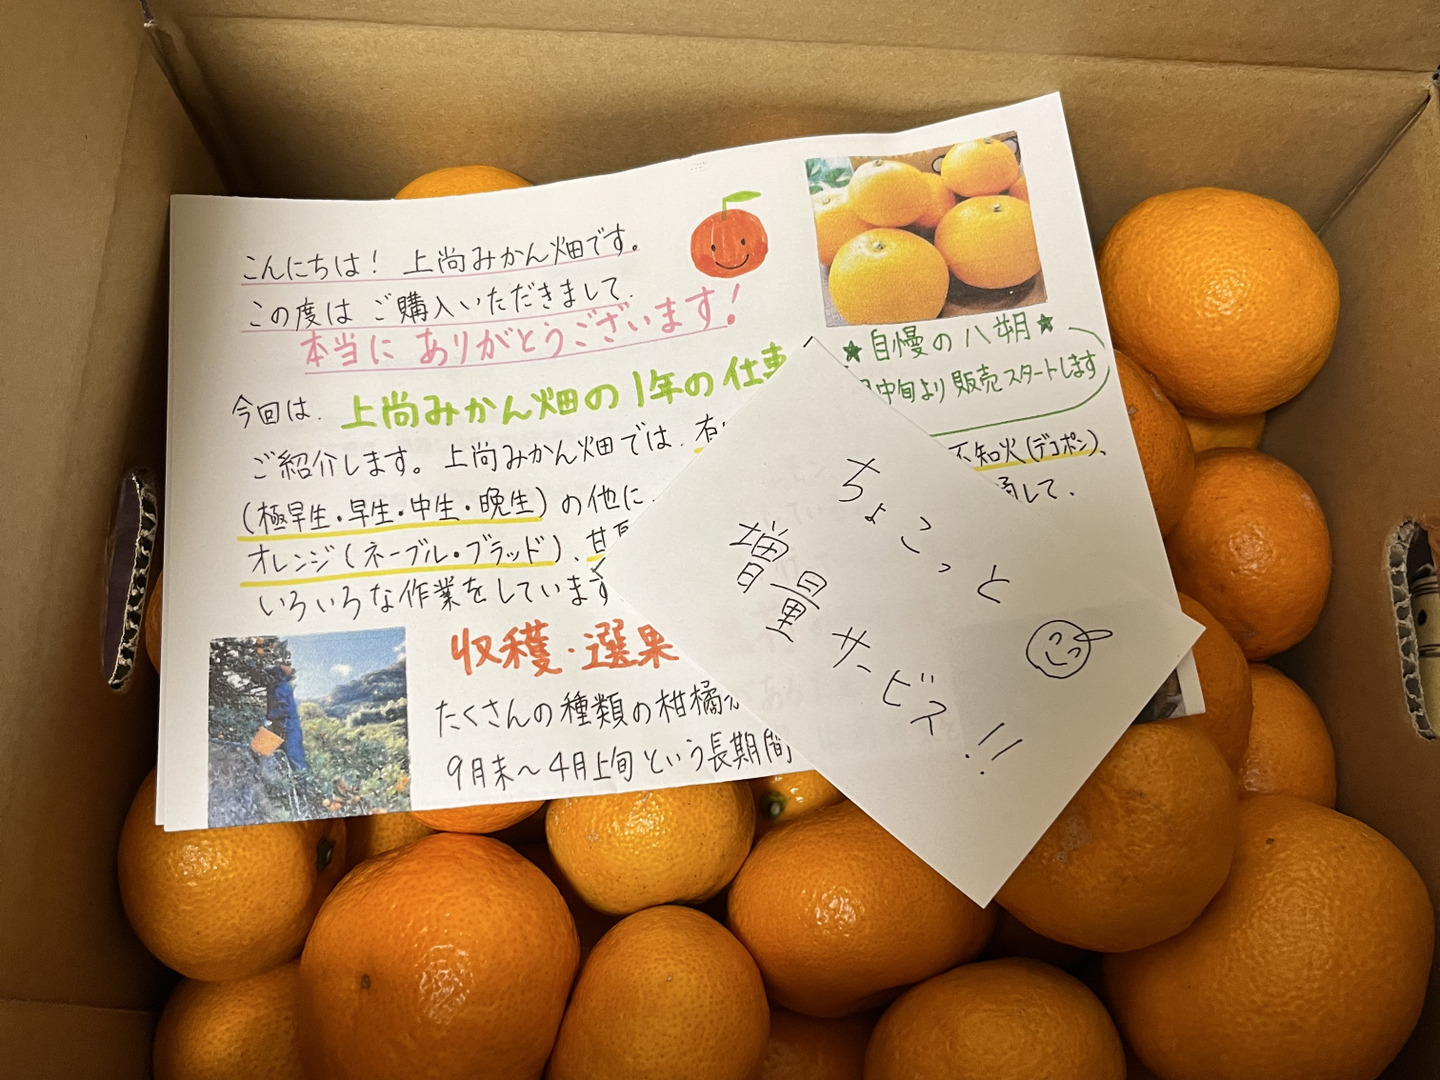 こんにちは! 上尚みかん畑です。
この度は ご購入いただきまして
本当に ありがとうございます!
今回は、上尚みかん畑の1年の仕事
ご紹介します。上尚みかん畑では、
(極早生・早生・中生・晩生)の他に、
オレンジ(ネーブル・ブラッド)、甘
いろいろな作業をしています
★自慢の八朔★
中旬より販売スタートします
不知火(デコポン)、
して、
収穫・選果
たくさんの種類の柑橘
9月末~4月上旬という長期間
ちょこっと
増量サービス!!